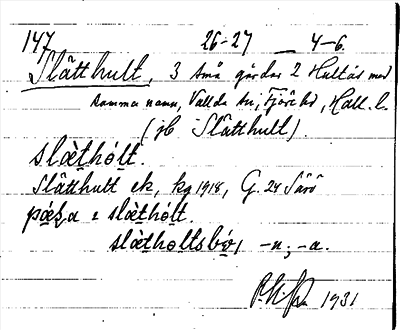 147 26-27 — 4-6.
Slätthult, 3 små gårdar 2 Hultås med
samma namn, Vallda sn, Fjäre hd, Hall. l.
(jb Slätthult).
slæ̀thól̬t.
Slätthult ek, kg 1918, G. 24 Särö
på a i slæ̀thól̬t.
slæ̀tholtsbó, -n; -a.
1931